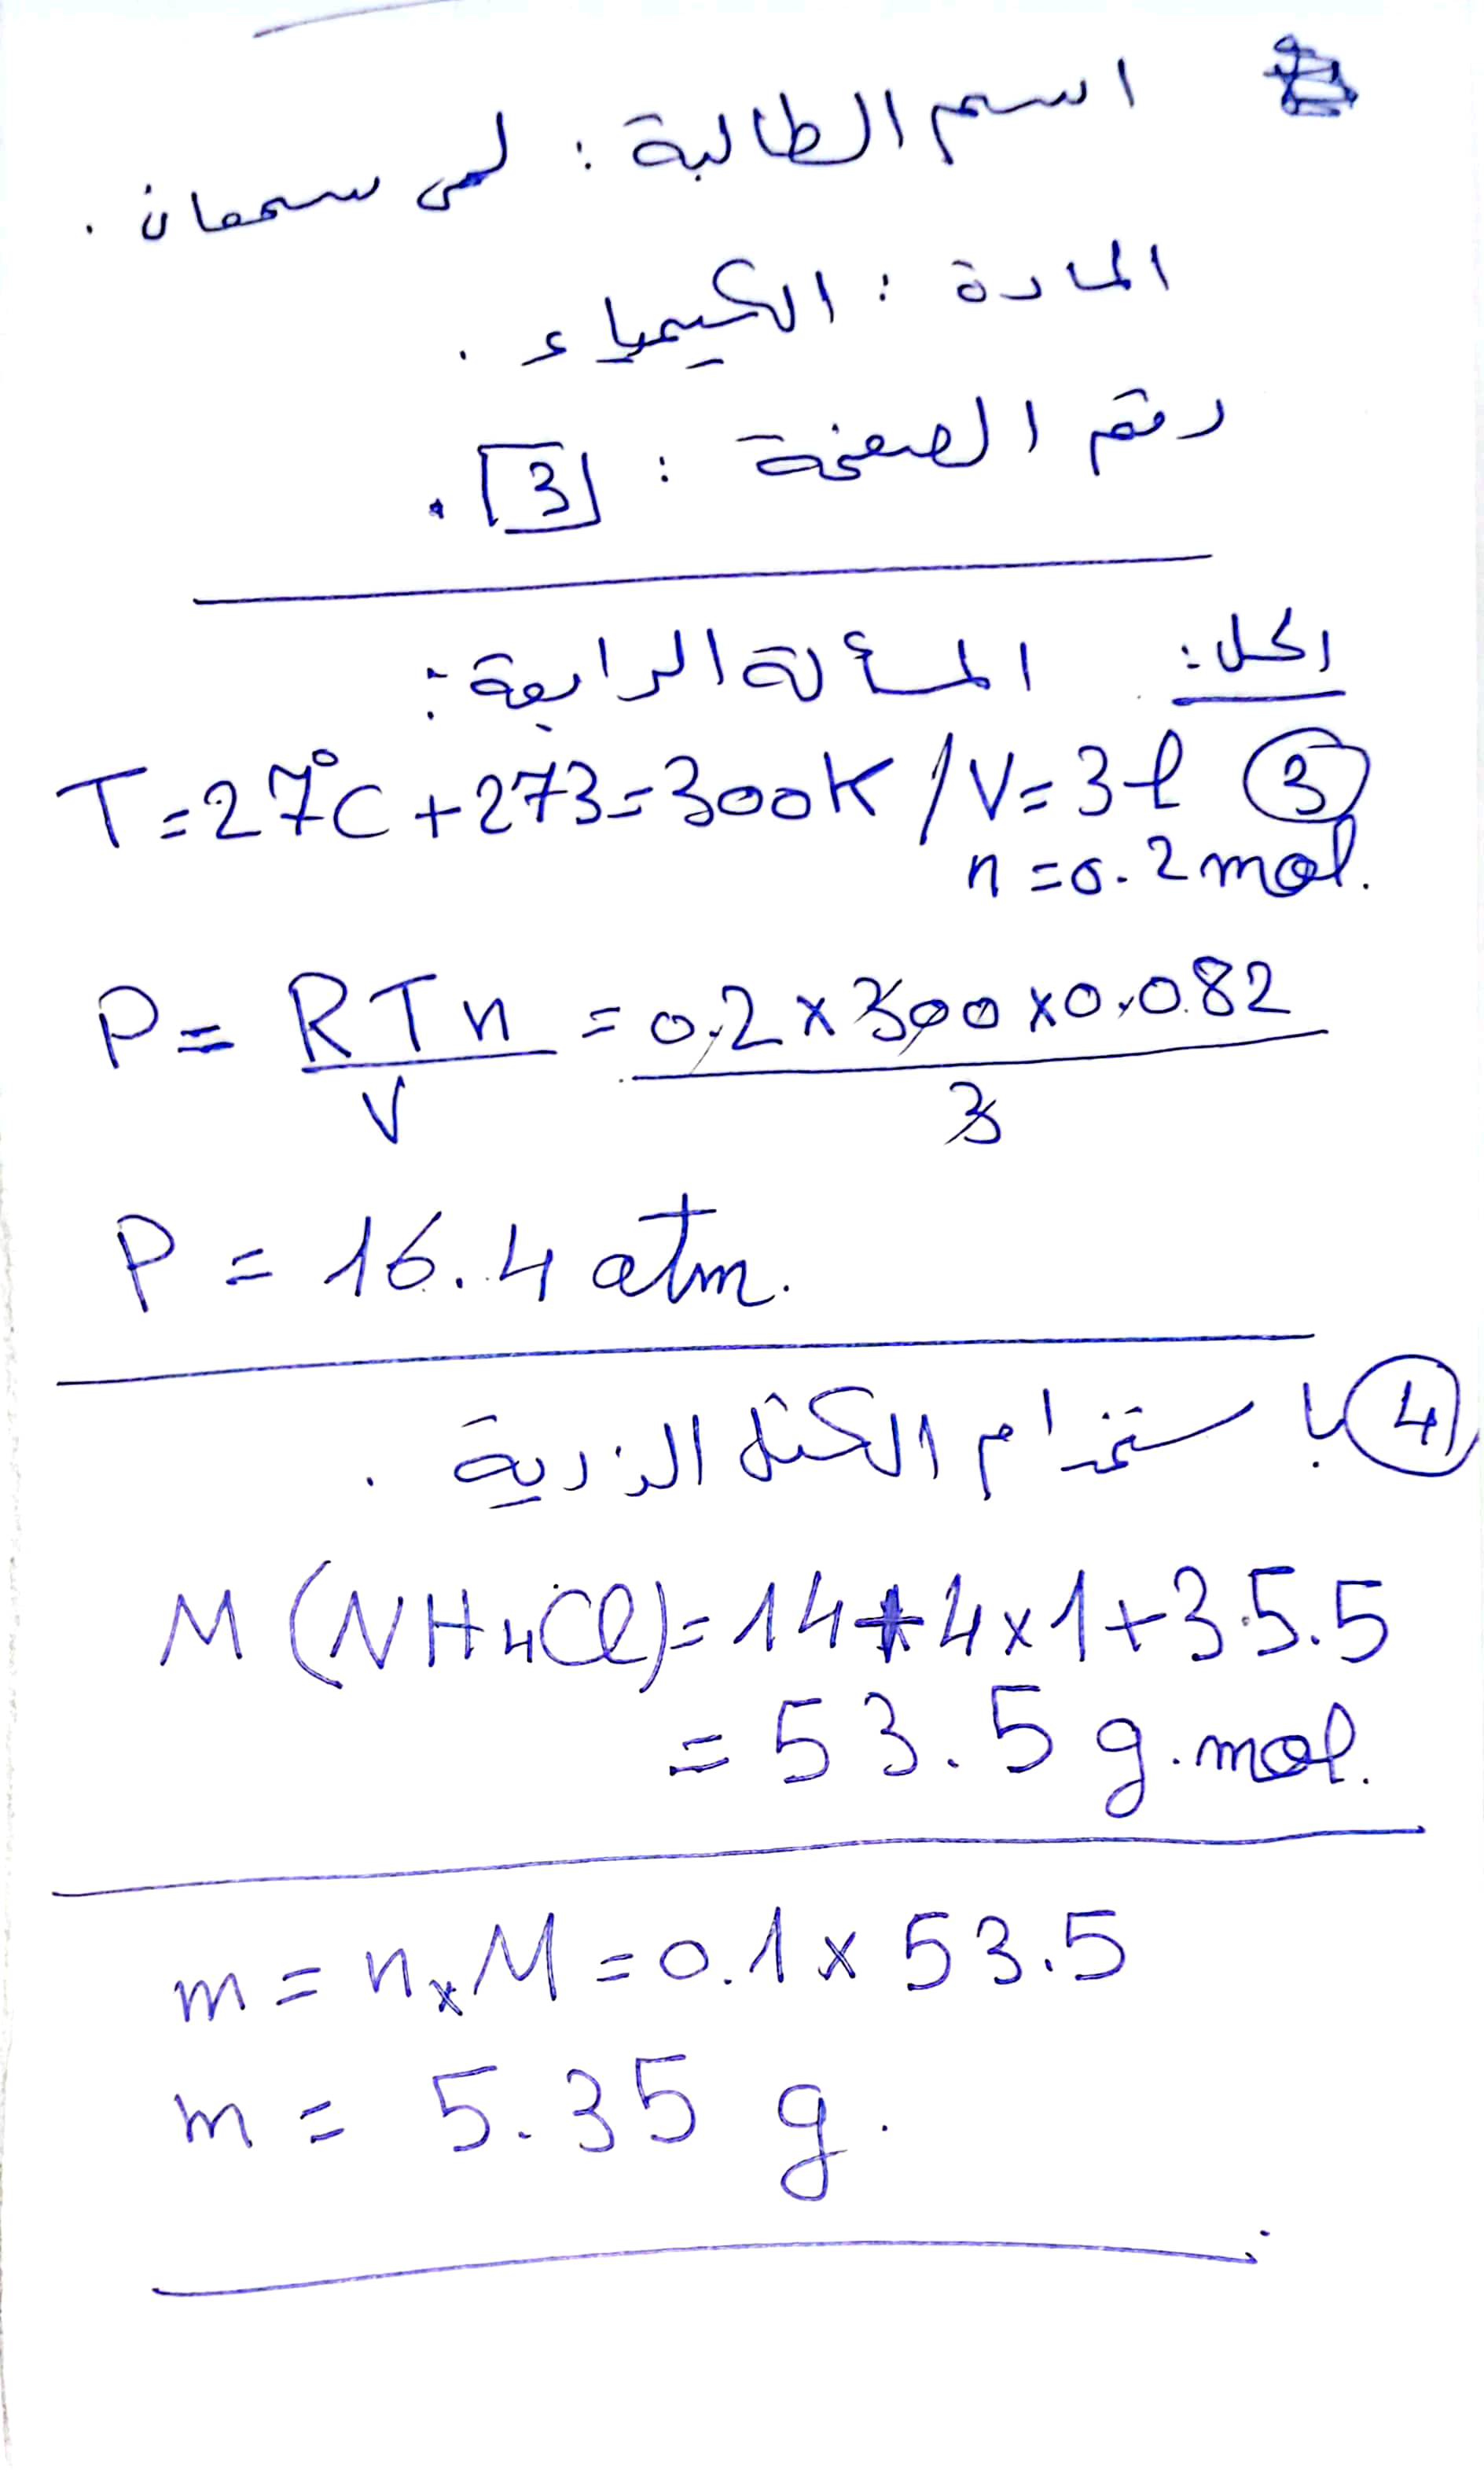 اسم الطالبة : لمى سمعان .
المادة : الكيمياء .
رقم الصفحة : 3 .
الحل : المسألة الرابعة :
T = 27°C + 273 = 300K / V = 3 l ③
n = 0.2 mol.
P = RTn / V = 0,2 x 300 x 0,082 / 3
P = 16.4 atm.
④ باستخدام الكتل الذرية .
M (NH4Cl) = 14 + 4 x 1 + 35.5
= 53.5 g.mol.
m = n x M = 0.1 x 53.5
m = 5.35 g.